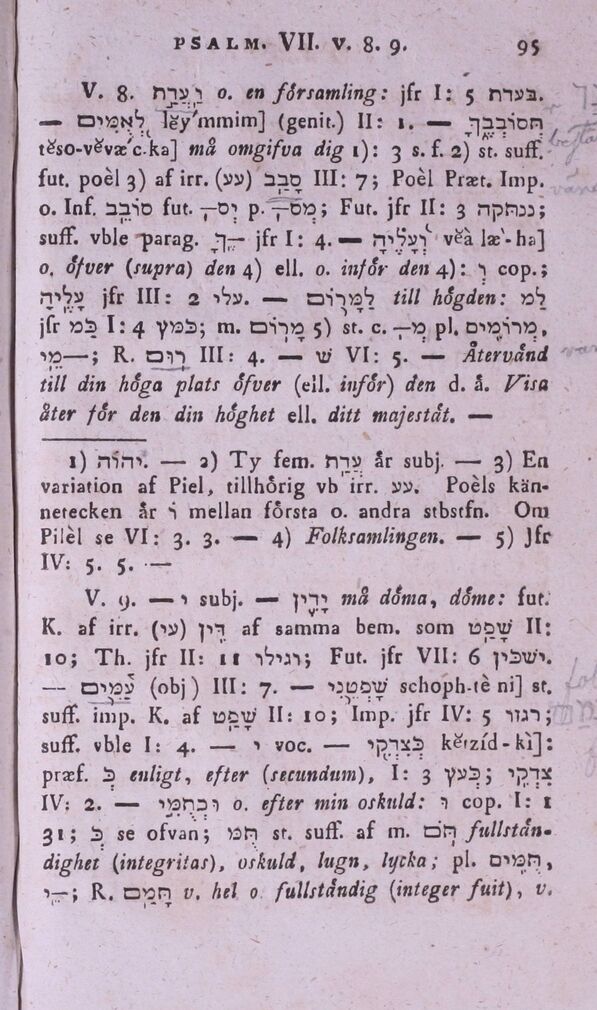 PSALM. VII. v. 8. 9. 95
V. 8. וַעֲדַת o. en församling: jfr I: 5 בעדת.
— לְאֻמִּים lĕy'mmim] (genit.) II: 1. — תְּסוֹבְבֶךָּ
tĕso-vĕvæ'c.ka] må omgifva dig 1): 3 s. f. 2) st. suff.
fut. poèl 3) af irr. (עע) סָבַב III: 7; Poèl Præt. Imp.
o. Inf. סוֹבֵב fut. יְס— p. מְס—; Fut. jfr II: 3 ננתקה;
suff. vble parag. ךָּ— jfr I: 4. — וְעָלֶיהָ vĕà læ'-ha]
o. öfver (supra) den 4) ell. o. inför den 4): וְ cop.;
עָלֶיהָ jfr III: 2 עלי. — לַמָּרוֹם till högden: לַמ
jfr כַּמ I: 4 כמץ; m. מָרוֹם 5) st. c. מְ— pl. מְרוֹמִים,
מֵי—; R. רוּם III: 4. — ש VI: 5. — Återvänd
till din höga plats öfver (ell. inför) den d. å. Visa
åter för den din höghet ell. ditt majestät. —
1) יהוֹה. — 2) Ty fem. עֲדַת är subj. — 3) En
variation af Piel, tillhörig vb irr. עע. Poèls kän-
netecken är וֹ mellan första o. andra stbstfn. Om
Pilèl se VI: 3. 3. — 4) Folksamlingen. — 5) Jfr
IV: 5. 5. —
V. 9. — י subj. — יָדִין må döma, döme: fut.
K. af irr. (עי) דִּין af samma bem. som שָׁפַט II:
10; Th. jfr II: 11 וגילו; Fut. jfr VII: 6 ישכין.
— עַמִּים (obj) III: 7. — שָׁפְטֵנִי schoph-tè ni] st.
suff. imp. K. af שָׁפַט II: 10; Imp. jfr IV: 5 רגזו;
suff. vble I: 4. — י voc. — כְּצִדְקִי kĕtzíd-kì]:
præf. כְּ enligt, efter (secundum), I: 3 כְּעץ; צִדְקִי
IV: 2. — וּכְתֻמִּי o. efter min oskuld: וּ cop. I: 1
31; כְּ se ofvan; תֻּמִּ st. suff. af m. תֹּם fullstän-
dighet (integritas), oskuld, lugn, lycka; pl. תֻּמִּים,
מֵּי—; R. תָּמַם v. hel o fullständig (integer fuit), v.